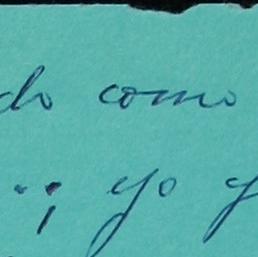 do como
..; yo y